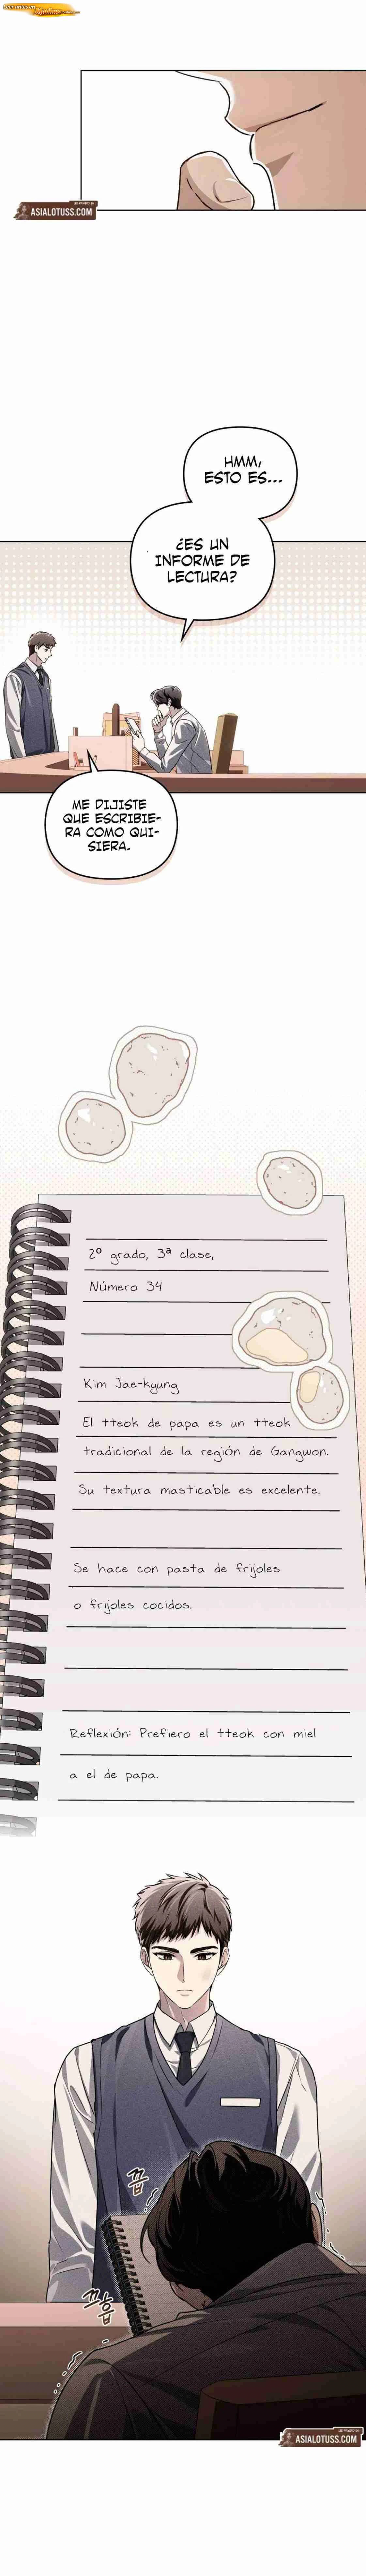 ASIALOTUSS.COM
HMM,
ESTO ES...
¿ES UN
INFORME DE
LECTURA?
ME DIJISTE
QUE ESCRIBIE-
RA COMO QUI-
SIERA.
2º grado, 3ª clase,
Número 34
Kim Jae-kyung
El tteok de papa es un tteok
tradicional de la región de Gangwon.
Su textura masticable es excelente.
Se hace con pasta de frijoles
o frijoles cocidos.
Reflexión: Prefiero el tteok con miel
a el de papa.
끕
끄흡
ASIALOTUSS.COM